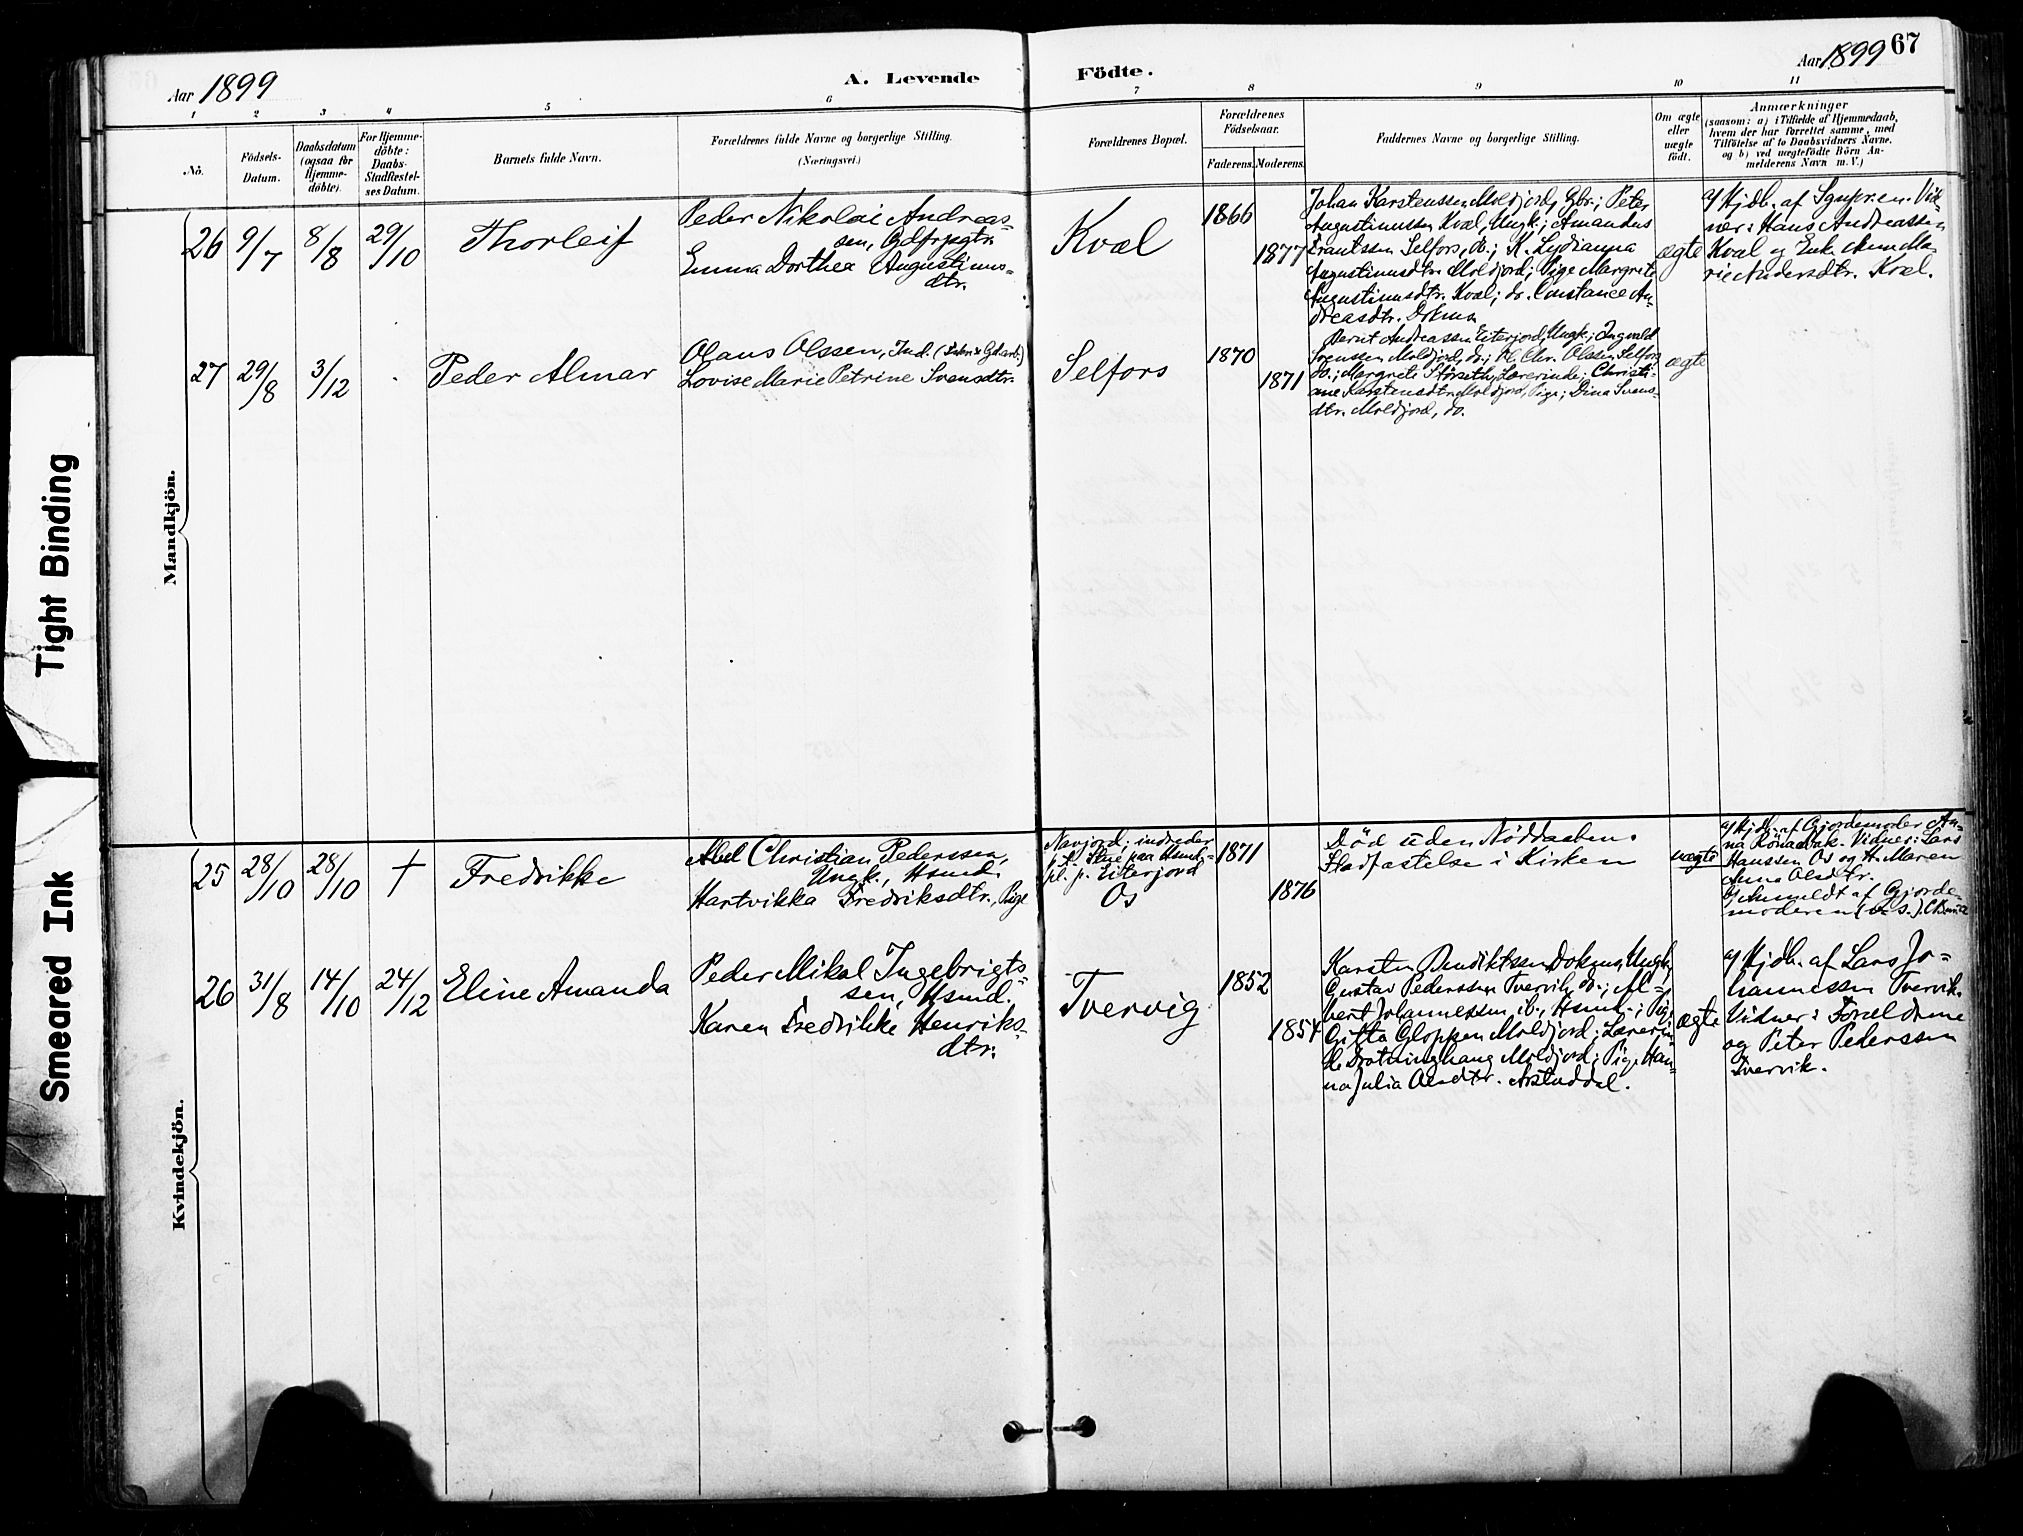 67
Aar 1899
A. Levende
Födte.
Aar 1899
1
2
3
4
5
6
7
8
9
10
11
No.
Födsels-
Datum.
Daabsdatum
(ogsaa for
Hjemme-
döbte).
For Hjemme-
döbte:
Daabs-
Stadfæstel-
ses Datum.
Barnets fulde Navn.
Forældrenes fulde Navne og borgerlige Stilling.
(Næringsvei.)
Forældrenes Bopæl.
Forældrenes
Födselsaar.
Faderens.
Moderens.
Faddernes Navne og borgerlige Stilling.
Om ægte
eller
uægte
födt.
Anmærkninger
(saasom: a) i Tilfælde af Hjemmedaab,
hvem der har forrettet samme, med
Tilföielse af to Daabsvidners Navne,
og b) ved uægtefödte Börn An-
melderens Navn m. V.)
Mandkjön.
26
9/7
8/8
29/10
Thorleif
Peder Nikolai Andreas-
sen, Gdfrpgtr.
Emma Dorthea Augustinus-
dtr.
Kvæl
1866
1877
Johan Karstenssen Moldjord, Gbr.; Peter
Augustinussen Kvæl, Ungk.; Amandus
Frantssen Selfors, do.; K. Lydianna
Augustinusdtr. Moldjord; Pige Margrete
Augustinusdtr. Kvæl; do. Constance An-
dreasdtr. Dokmo
ægte
a/ Hjdb. af Sgnpr.en. Vid-
ner: Hans Andreassen
Kvæl og Enke Anne Ma-
rie Andersdtr. Kvæl.
27
29/8
3/12
Peder Almar
Olaus Olssen, Ind.
Lovise Marie Petrine Svensdtr.
Selfors
1870
1871
Bernt Andreassen Eiterjord, Ungk.; Ingvald
Sörenssen Moldjord, do.; Chr. Olssen Selfors
do.; Margrete Störseth, Lærerinde; Christi-
ane Karstensdtr. Moldjord, Pige; Dina Svens-
dtr. Moldjord, do.
ægte
Kvindekjön.
25
28/10
28/10
†
Fredrikke
Abel Christian Pederssen,
Ungk., Hsmd.
Hartvikka Fredriksdtr., Pige
Navjord; indreder
p. t. Stue paa Hsmd-
pl. p. Eiterjord
Os
1871
1876
Död uden Nöddaabens
Stadfæstelse i Kirken
uægte
a/ Hjdb. af Gjordemoder An-
na Vidner: Lars
Hanssen Os og H. Maren
Anna Olsdtr.
b/ Anmeldt af Gjorde-
moderen
26
31/8
14/10
24/12
Eline Amanda
Peder Mikal Ingebrigts-
sen, Hsmd.
Karen Fredrikke Henriks-
dtr.
Tvervig
1852
1854
Karsten Bendiktsen Dokmo, Ungk.
Gustav Pederssen Tvervik, do.; Al-
bert Johannessen, ib., Hsmd.; Pige
Gitta Gloppen Moldjord; Lærerin-
de Drotninghaug Moldjord; Pige Han-
na Julia Olsdtr. Arstaddal.
ægte
a/ Hjdb. af Lars Jo-
hannessen Tvervik.
Vidner: Forældrene
og Peter Pederssen
Tvervik.
Tight Binding
Smeared Ink